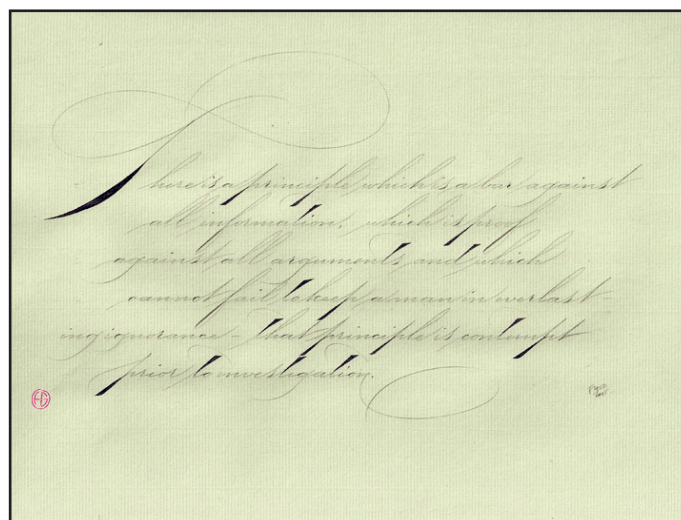 There is a principle which is a bar against
all information, which is proof
against all arguments and which
cannot fail to keep a man in everlast-
ing ignorance - that principle is contempt
prior to investigation.